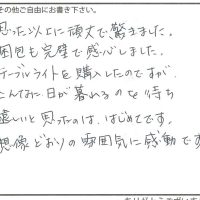 その他ご自由にお書き下さい。
思った以上に頑丈で驚きました。
梱包も完璧で感心しました。
テーブルライトを購入したのですが、
こんなに日が暮れるのを待ち
遠しいと思ったのは、はじめてです。
想像どおりの雰囲気に感動です